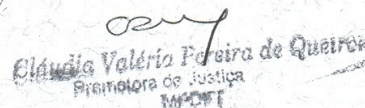 Cláudia Valéria Pereira de Queiroz
Promotora de Justiça
MPDFT